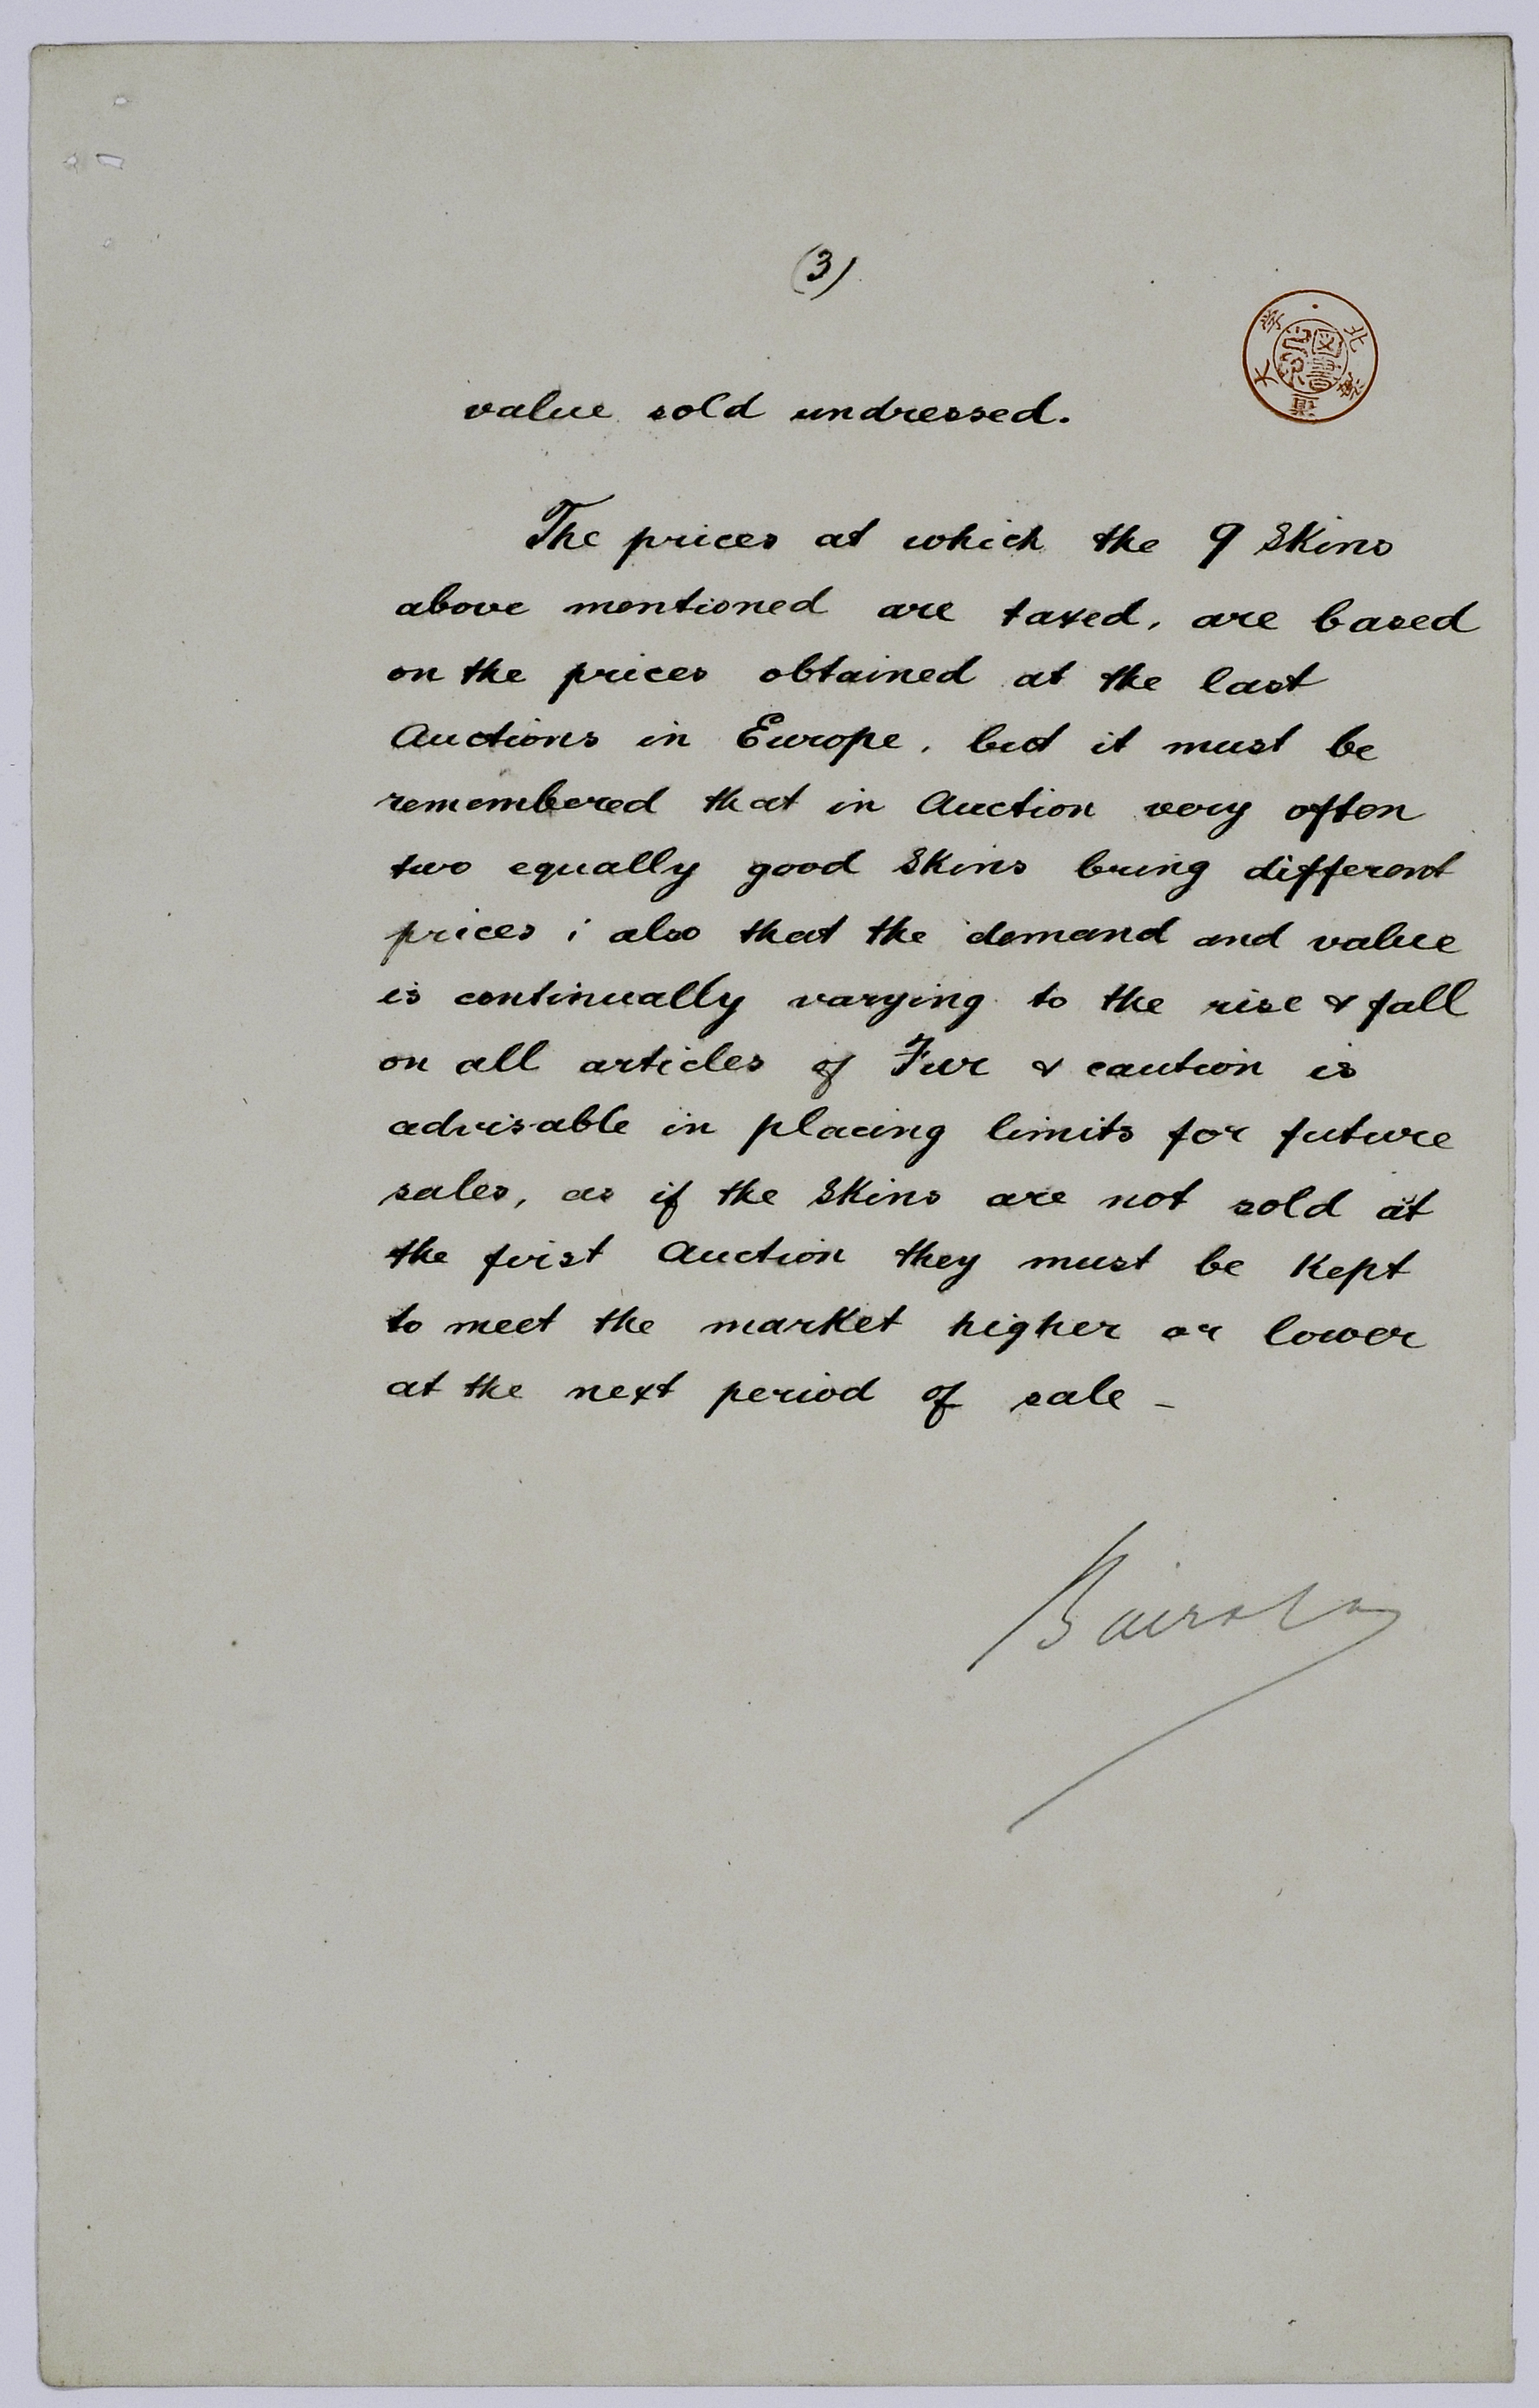 (3)
北海道大学
図書
value sold undressed.
The prices at which the 9 Skins
above mentioned are taxed, are based
on the prices obtained at the last
Auctions in Europe, but it must be
remembered that in Auction very often
two equally good Skins bring different
prices; also that the demand and value
is continually varying to the rise & fall
on all articles of Fur & caution is
advisable in placing limits for future
sales, as if the Skins are not sold at
the first Auction they must be Kept
to meet the market higher or lower
at the next period of sale –